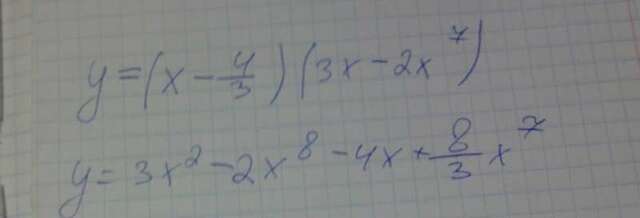 y = (x - 4/3)(3x - 2x^7)
y = 3x^2 - 2x^8 - 4x + 8/3 x^7